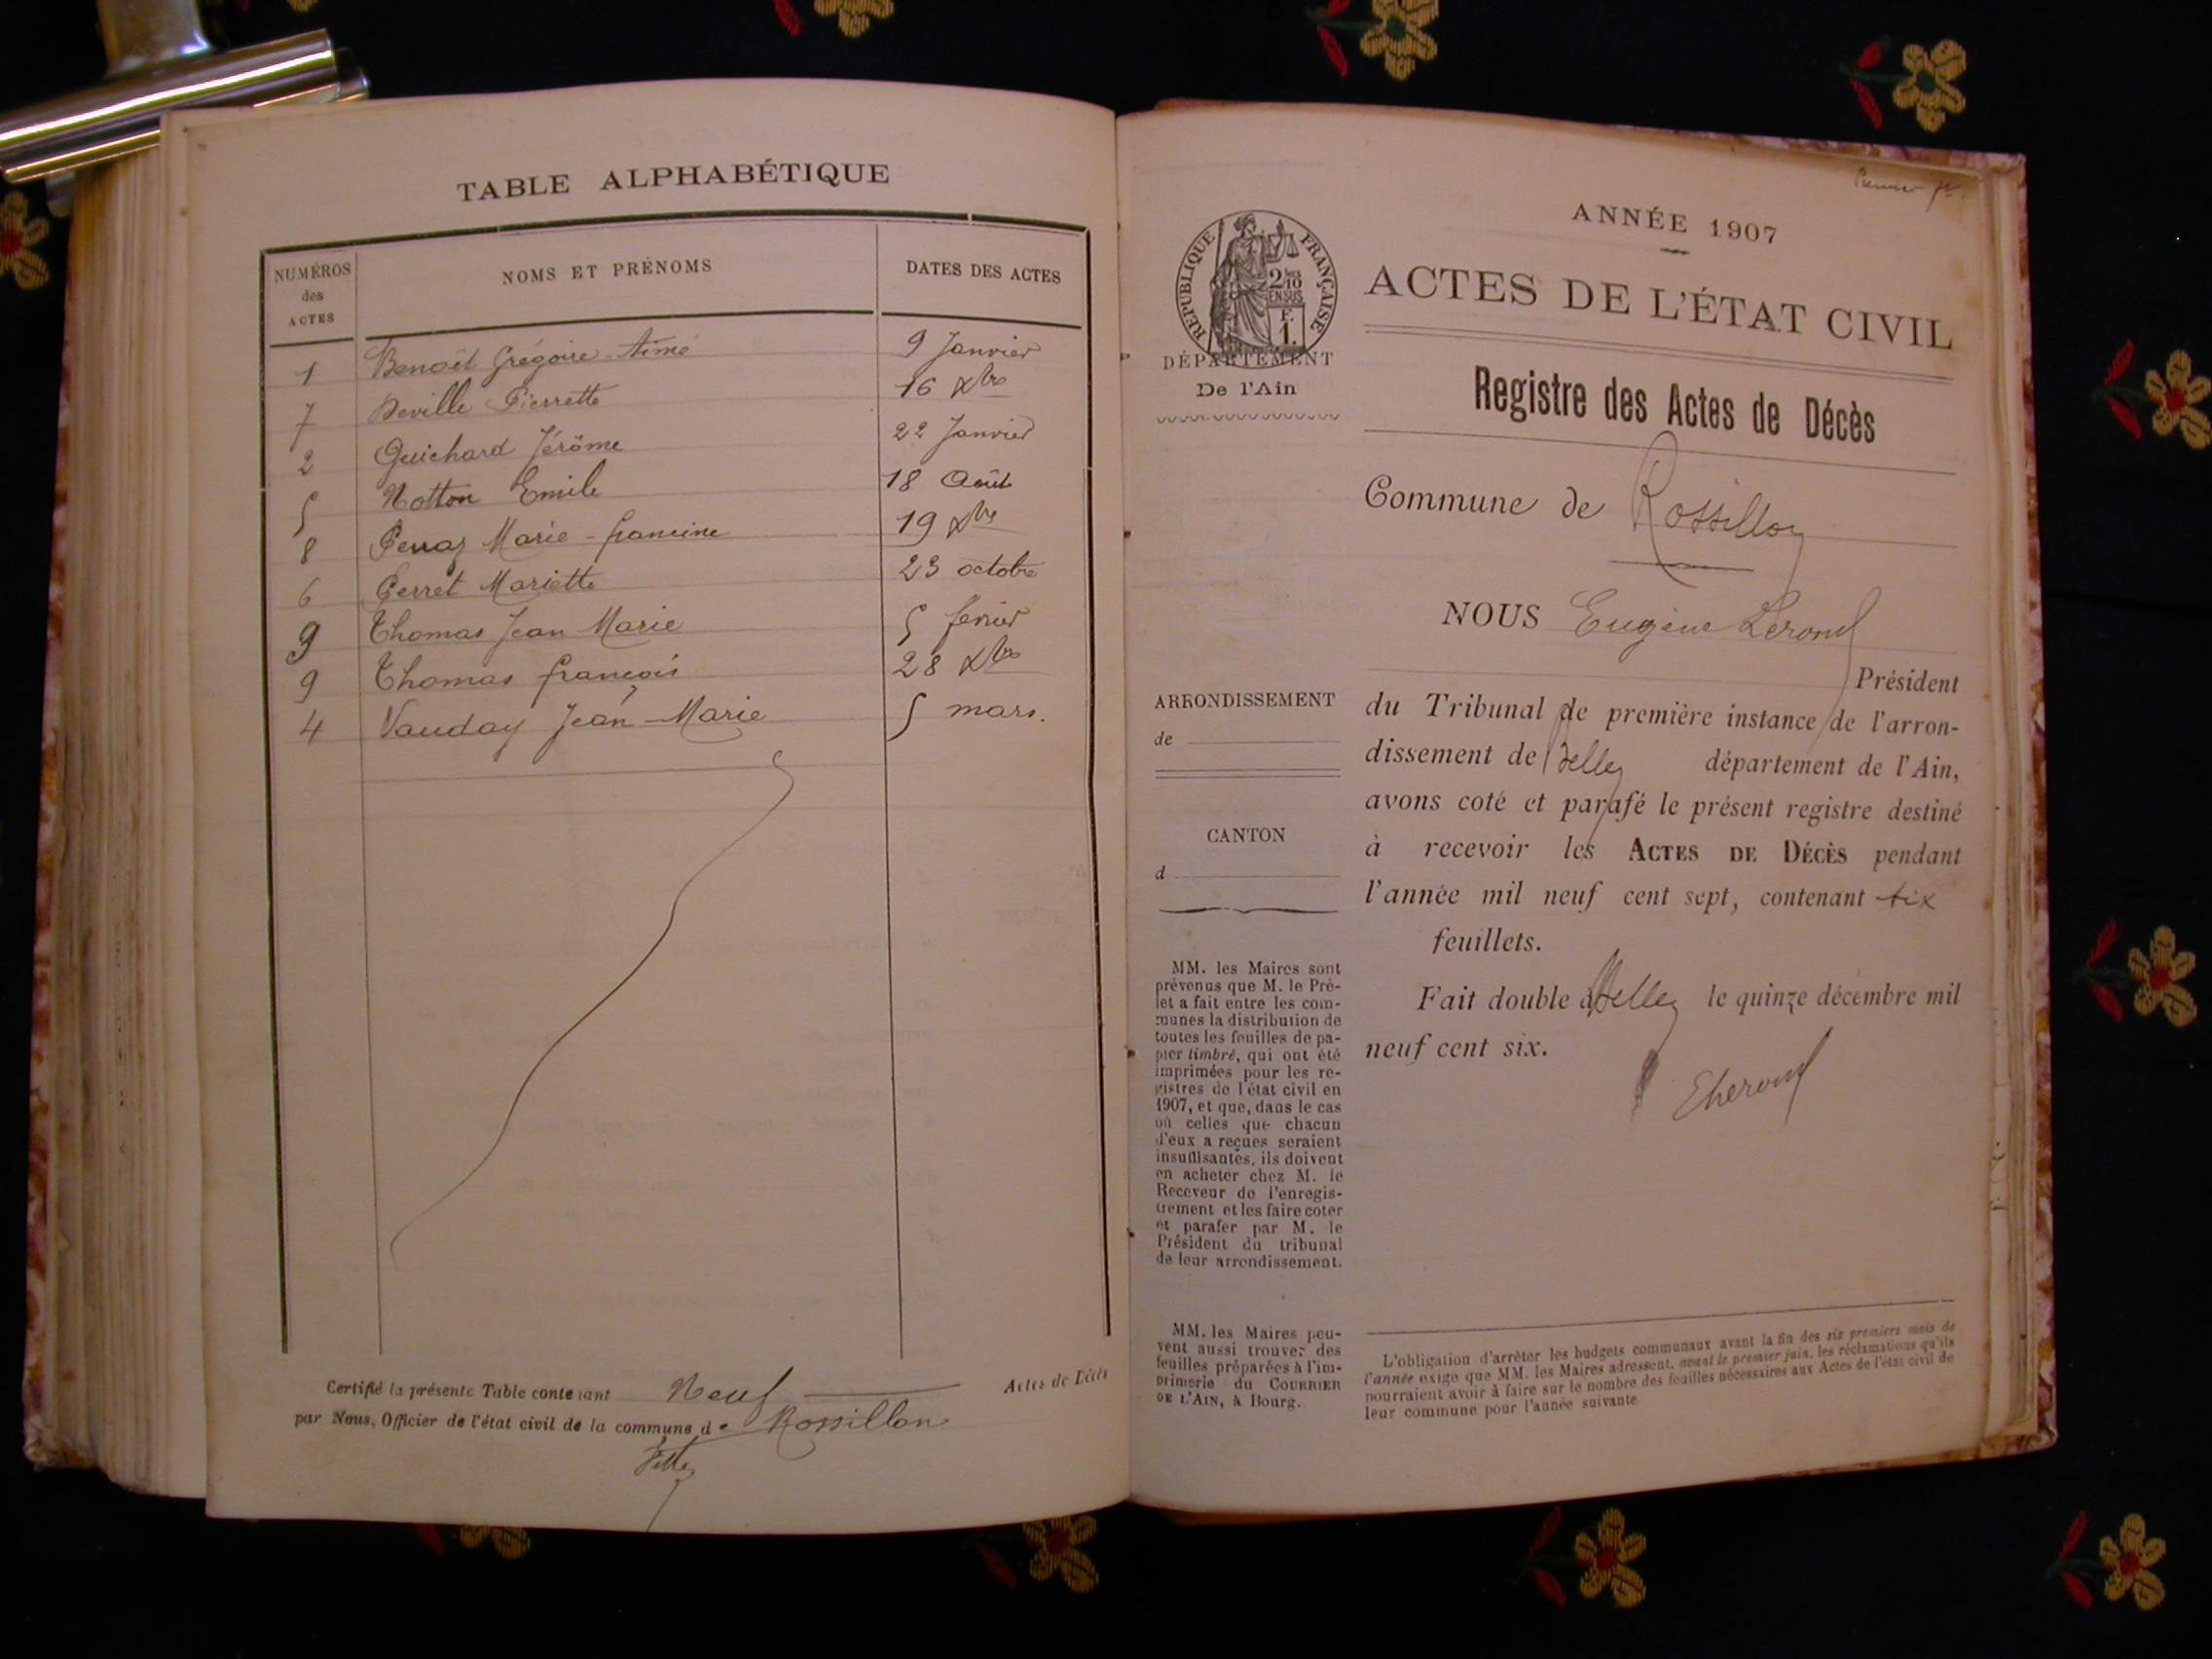 TABLE ALPHABÉTIQUE
NUMÉROS des ACTES NOMS ET PRÉNOMS DATES DES ACTES
1 Benoit Grégoire-Aimé 9 Janvier
7 Deville Pierrette 16 Xbre
2 Guichard Jérôme 22 Janvier
5 Notton Emile 18 Août
8 Perraz Marie-francine 19 Xbre
6 Perret Mariette 23 octobre
9 Thomas Jean Marie 5 fevrier
9 Thomas françois 28 Xbre
4 Vauday Jean-Marie 5 mars.
Certifié la présente Table contenant Neuf Actes de Décès
par Nous, Officier de l'état civil de la commune de Rossillon
Premier
ANNÉE 1907
ACTES DE L'ÉTAT CIVIL
Registre des Actes de Décès
RÉPUBLIQUE FRANÇAISE
2/10 EN SUS
F. 1.
DÉPARTEMENT
De l'Ain
Commune de Rossillon
NOUS Eugène
Président
du Tribunal de première instance de l'arron-
dissement de Belley département de l'Ain,
avons coté et parafé le présent registre destiné
à recevoir les ACTES DE DÉCÈS pendant
l'année mil neuf cent sept, contenant six
feuillets.
Fait double à Belley le quinze décembre mil
neuf cent six.
ARRONDISSEMENT
de
CANTON
d
MM. les Maires sont
prévenus que M. le Pré-
fet a fait entre les com-
munes la distribution de
toutes les feuilles de pa-
pier timbré, qui ont été
imprimées pour les re-
gistres de l'état civil en
1907, et que, dans le cas
où celles que chacun
d'eux a reçues seraient
insuffisantes, ils doivent
en acheter chez M. le
Receveur de l'enregis-
trement et les faire coter
et parafer par M. le
Président du tribunal
de leur arrondissement.
MM. les Maires peu-
vent aussi trouver des
feuilles préparées à l'im-
primerie du COURRIER
DE L'AIN, à Bourg.
L'obligation d'arrêter les budgets communaux avant la fin des six premiers mois de
l'année exige que MM. les Maires adressent, avant le premier juin, les réclamations qu'ils
pourraient avoir à faire sur le nombre des feuilles nécessaires aux Actes de l'état civil de
leur commune pour l'année suivante.